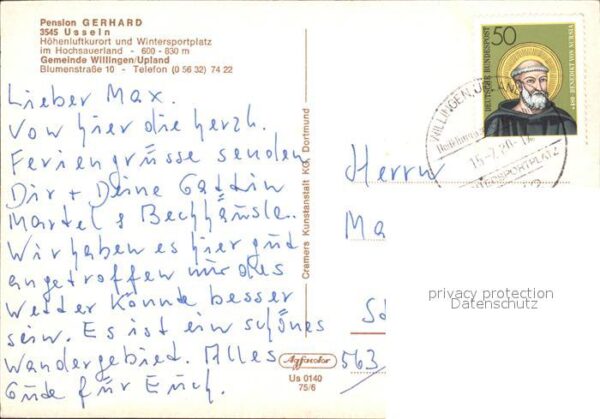 Pension GERHARD
3545 Usseln
Höhenluftkurort und Wintersportplatz
im Hochsauerland - 600 - 830 m
Gemeinde Willingen/Upland
Blumenstraße 10 - Telefon (0 56 32) 74 22
Lieber Max.
Von hier die herzl.
Feriengrüsse senden
Dir + Deine Gattin
Wir haben es hier gut
angetroffen nur das
Wetter könnte besser
sein. Es ist ein schönes
Wandergebied. Alles
Gude für Euch.
Cramers Kunstanstalt KG, Dortmund
Agfacolor
Us 0140
75/6
DEUTSCHE BUNDESPOST
50
480 BENEDIKT VON NURSIA
WILLINGEN, UPLAND
Herrn
Ma
563
privacy protection
Datenschutz